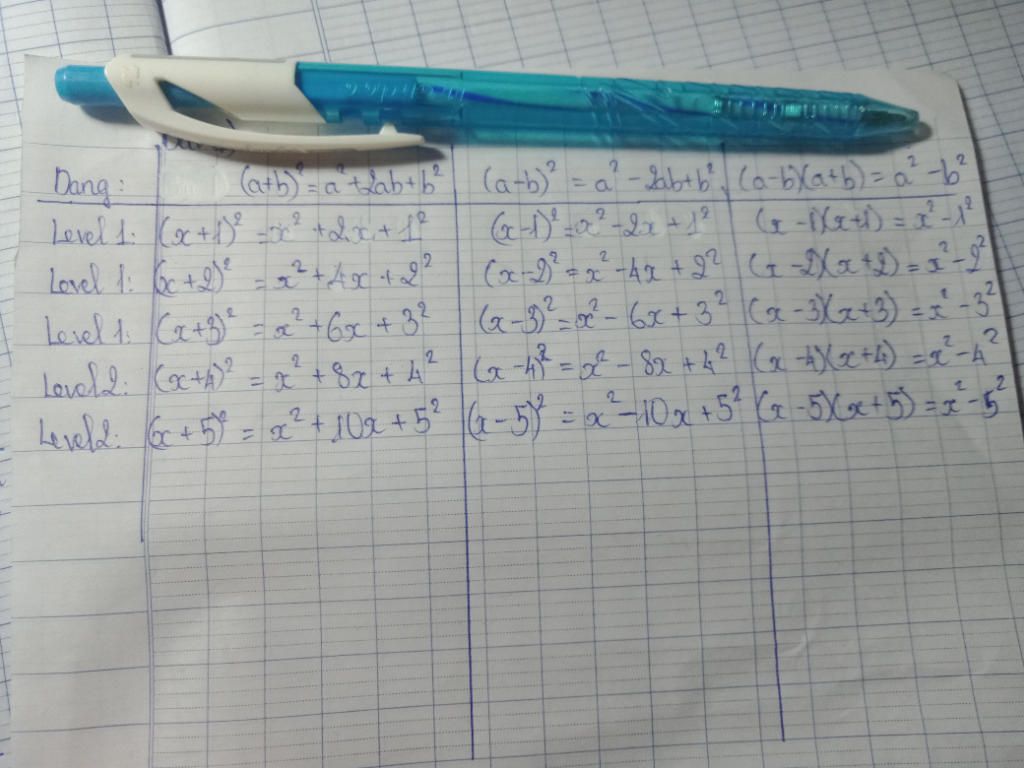 Dang: (a+b)² = a² + 2ab + b² (a-b)² = a² - 2ab + b² (a-b)(a+b) = a² - b²
Level 1: (x+1)² = x² + 2x + 1² (x-1)² = x² - 2x + 1² (x-1)(x+1) = x² - 1²
Level 1: (x+2)² = x² + 4x + 2² (x-2)² = x² - 4x + 2² (x-2)(x+2) = x² - 2²
Level 1: (x+3)² = x² + 6x + 3² (x-3)² = x² - 6x + 3² (x-3)(x+3) = x² - 3²
Level 2: (x+4)² = x² + 8x + 4² (x-4)² = x² - 8x + 4² (x-4)(x+4) = x² - 4²
Level 2: (x+5)² = x² + 10x + 5² (x-5)² = x² - 10x + 5² (x-5)(x+5) = x² - 5²